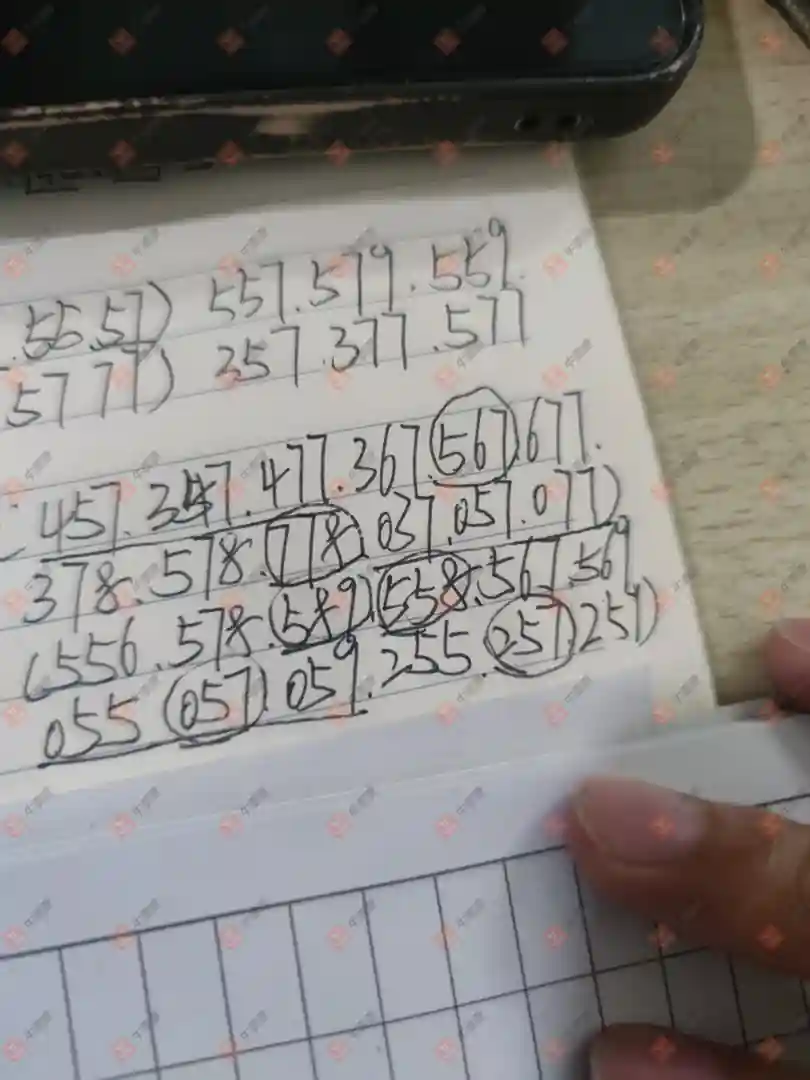 .55.57) 557.579.559.
5777) 257.377.577
457.357.477.367.567.677.
378.578.778.037.057.077)
(556.578.589.558.567.569
055 057.059.255.257.259)